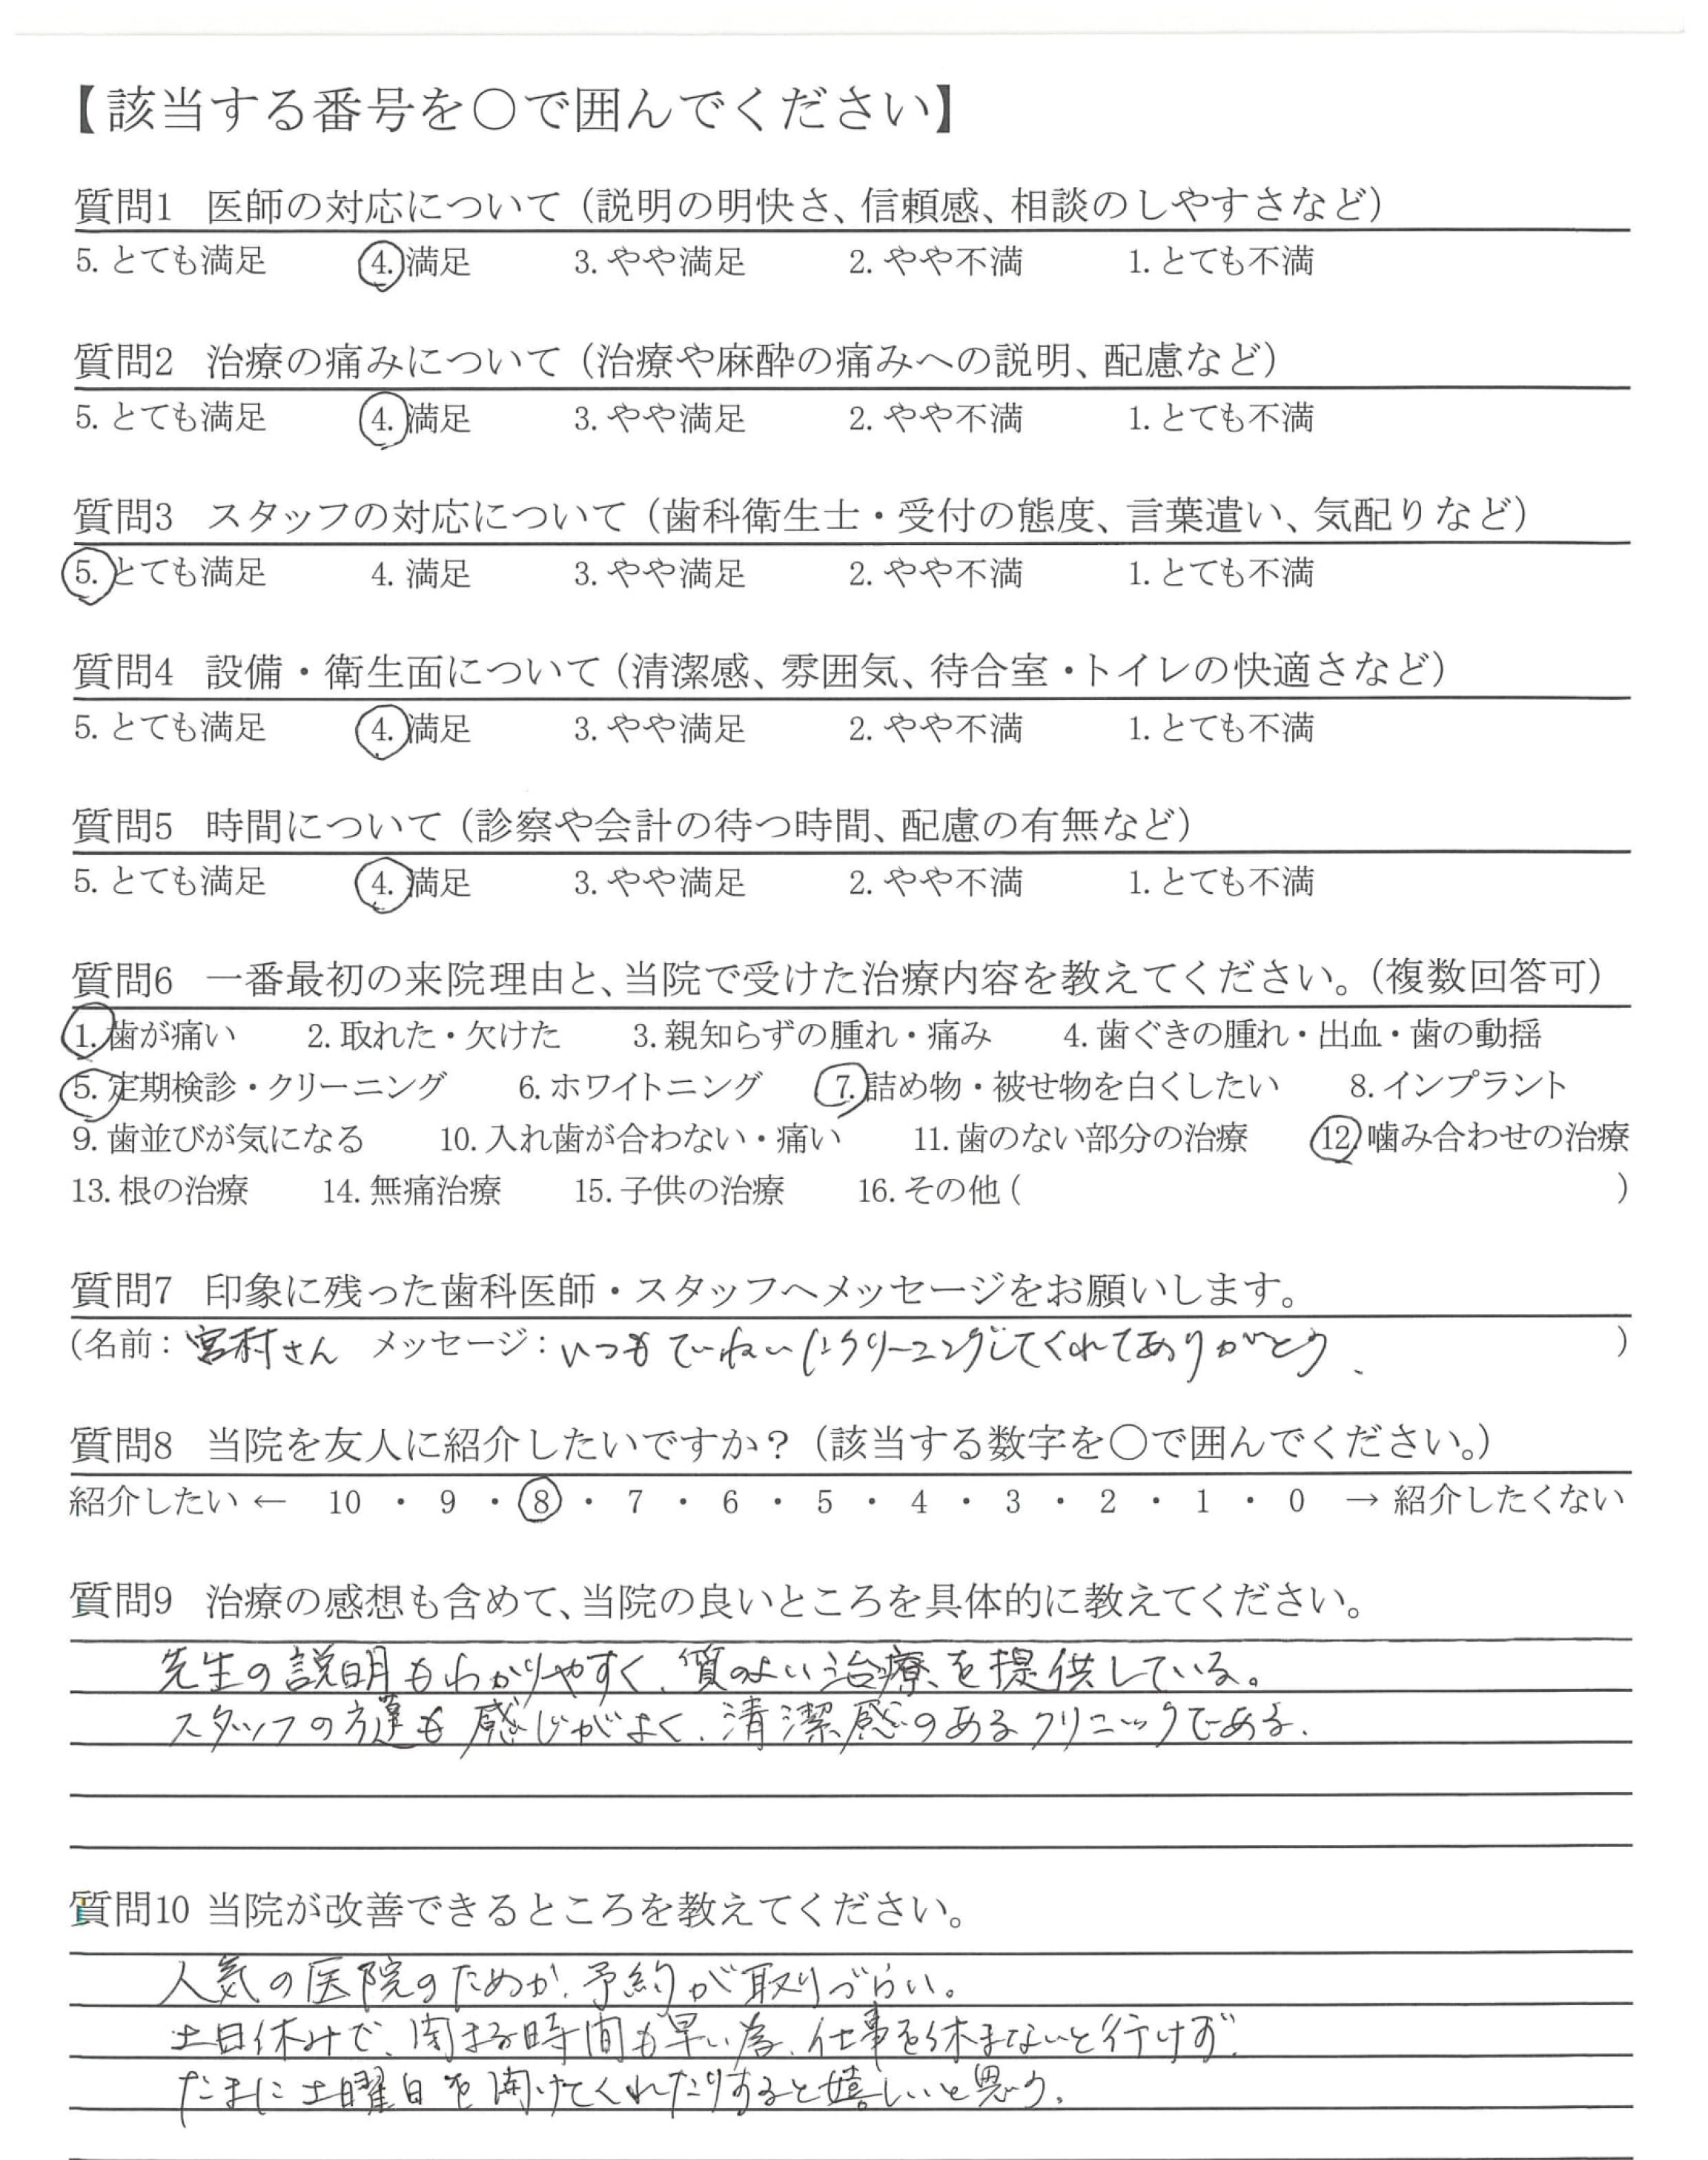 【該当する番号を〇で囲んでください】
質問1 医師の対応について（説明の明快さ、信頼感、相談のしやすさなど）
5. とても満足 4. 満足 3. やや満足 2. やや不満 1. とても不満
質問2 治療の痛みについて（治療や麻酔の痛みへの説明、配慮など）
5. とても満足 4. 満足 3. やや満足 2. やや不満 1. とても不満
質問3 スタッフの対応について（歯科衛生士・受付の態度、言葉遣い、気配りなど）
5. とても満足 4. 満足 3. やや満足 2. やや不満 1. とても不満
質問4 設備・衛生面について（清潔感、雰囲気、待合室・トイレの快適さなど）
5. とても満足 4. 満足 3. やや満足 2. やや不満 1. とても不満
質問5 時間について（診察や会計の待つ時間、配慮の有無など）
5. とても満足 4. 満足 3. やや満足 2. やや不満 1. とても不満
質問6 一番最初の来院理由と、当院で受けた治療内容を教えてください。（複数回答可）
1. 歯が痛い 2. 取れた・欠けた 3. 親知らずの腫れ・痛み 4. 歯ぐきの腫れ・出血・歯の動揺
5. 定期検診・クリーニング 6. ホワイトニング 7. 詰め物・被せ物を白くしたい 8. インプラント
9. 歯並びが気になる 10. 入れ歯が合わない・痛い 11. 歯のない部分の治療 12. 噛み合わせの治療
13. 根の治療 14. 無痛治療 15. 子供の治療 16. その他（ ）
質問7 印象に残った歯科医師・スタッフへメッセージをお願いします。
（名前：宮村さん メッセージ：いつもていねいにクリーニングしてくれてありがとう. ）
質問8 当院を友人に紹介したいですか？（該当する数字を〇で囲んでください。）
紹介したい ← 10 ・ 9 ・ 8 ・ 7 ・ 6 ・ 5 ・ 4 ・ 3 ・ 2 ・ 1 ・ 0 → 紹介したくない
質問9 治療の感想も含めて、当院の良いところを具体的に教えてください。
先生の説明もわかりやすく、質のよい治療を提供している。
スタッフの方達も感じがよく、清潔感のあるクリニックである.
質問10 当院が改善できるところを教えてください。
人気の医院のためか、予約が取りづらい。
土日休みで、閉まる時間も早い為、仕事を休まないと行けず、
たまに土曜日を開けてくれたりすると嬉しいと思う.